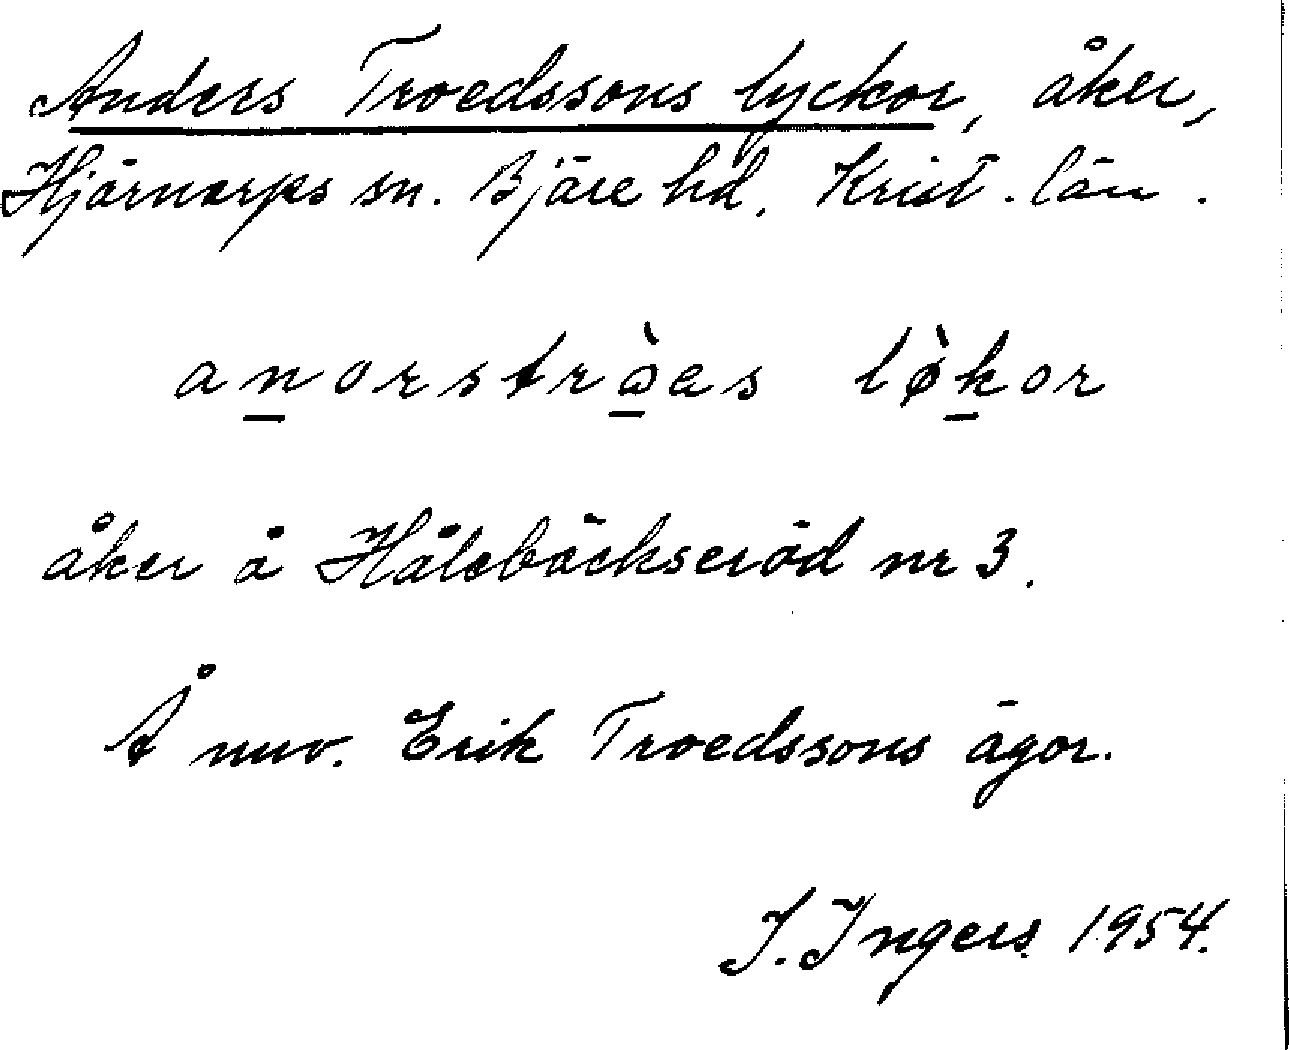 Anders Troedssons lyckor, åker,
Hjärnarps sn. Bjäre hd. Krist. län.
anorstròas lø̀kor
åker å Hålebäckseröd nr 3.
Å nuv. Erik Troedssons ägor.
I. Ingers 1954.